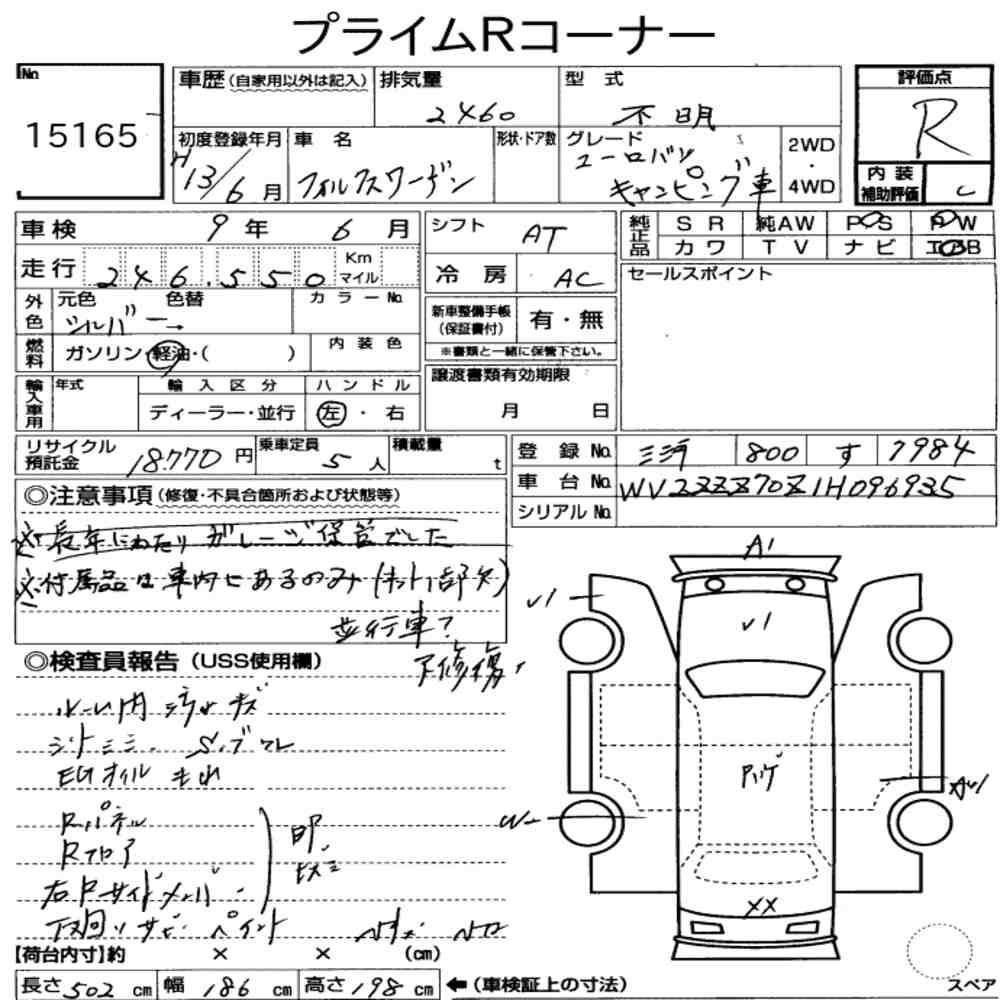 プライムRコーナー
No. 15165
車歴(自家用以外は記入)
排気量 2460
型式 不明
評価点 R
内装補助評価 C
初度登録年月 H13/6月
車名 フォルクスワーゲン
形状・ドア数
グレード ユーロバン キャンピング車
2WD・4WD
車検 9年 6月
シフト AT
純正品 SR 純AW PS PW
カワ TV ナビ エアB
走行 246,550 Km マイル
冷房 AC
セールスポイント
外色 元色 シルバー→ 色替
カラーNo.
新車整備手帳(保証書付) 有・無
※書類と一緒に保管下さい。
燃料 ガソリン・軽油・( )
内装色
譲渡書類有効期限 月 日
輸入車用 年式
輸入区分 ディーラー・並行
ハンドル 左・右
リサイクル預託金 18.770円
乗車定員 5人
積載量 t
登録No. 三河 800 す 7984
車台No. WV2ZZZ70Z1H096935
シリアルNo.
◎注意事項(修復・不具合箇所および状態等)
※長年にわたりガレージ保管でした
※付属品は車内にあるのみ(キット1部欠)
並行車?
◎検査員報告(USS使用欄)
下修復
ルーム内 キズ
シート S.ブレ
EGオイルもれ
Rパネル
Rフロア
右Rサイドメンバー
下回りサビ ペイント
A1
√1
√1
W2
XX
【荷台内寸】約 × × (cm)
長さ 502 cm 幅 186 cm 高さ 198 cm ←(車検証上の寸法)
スペア